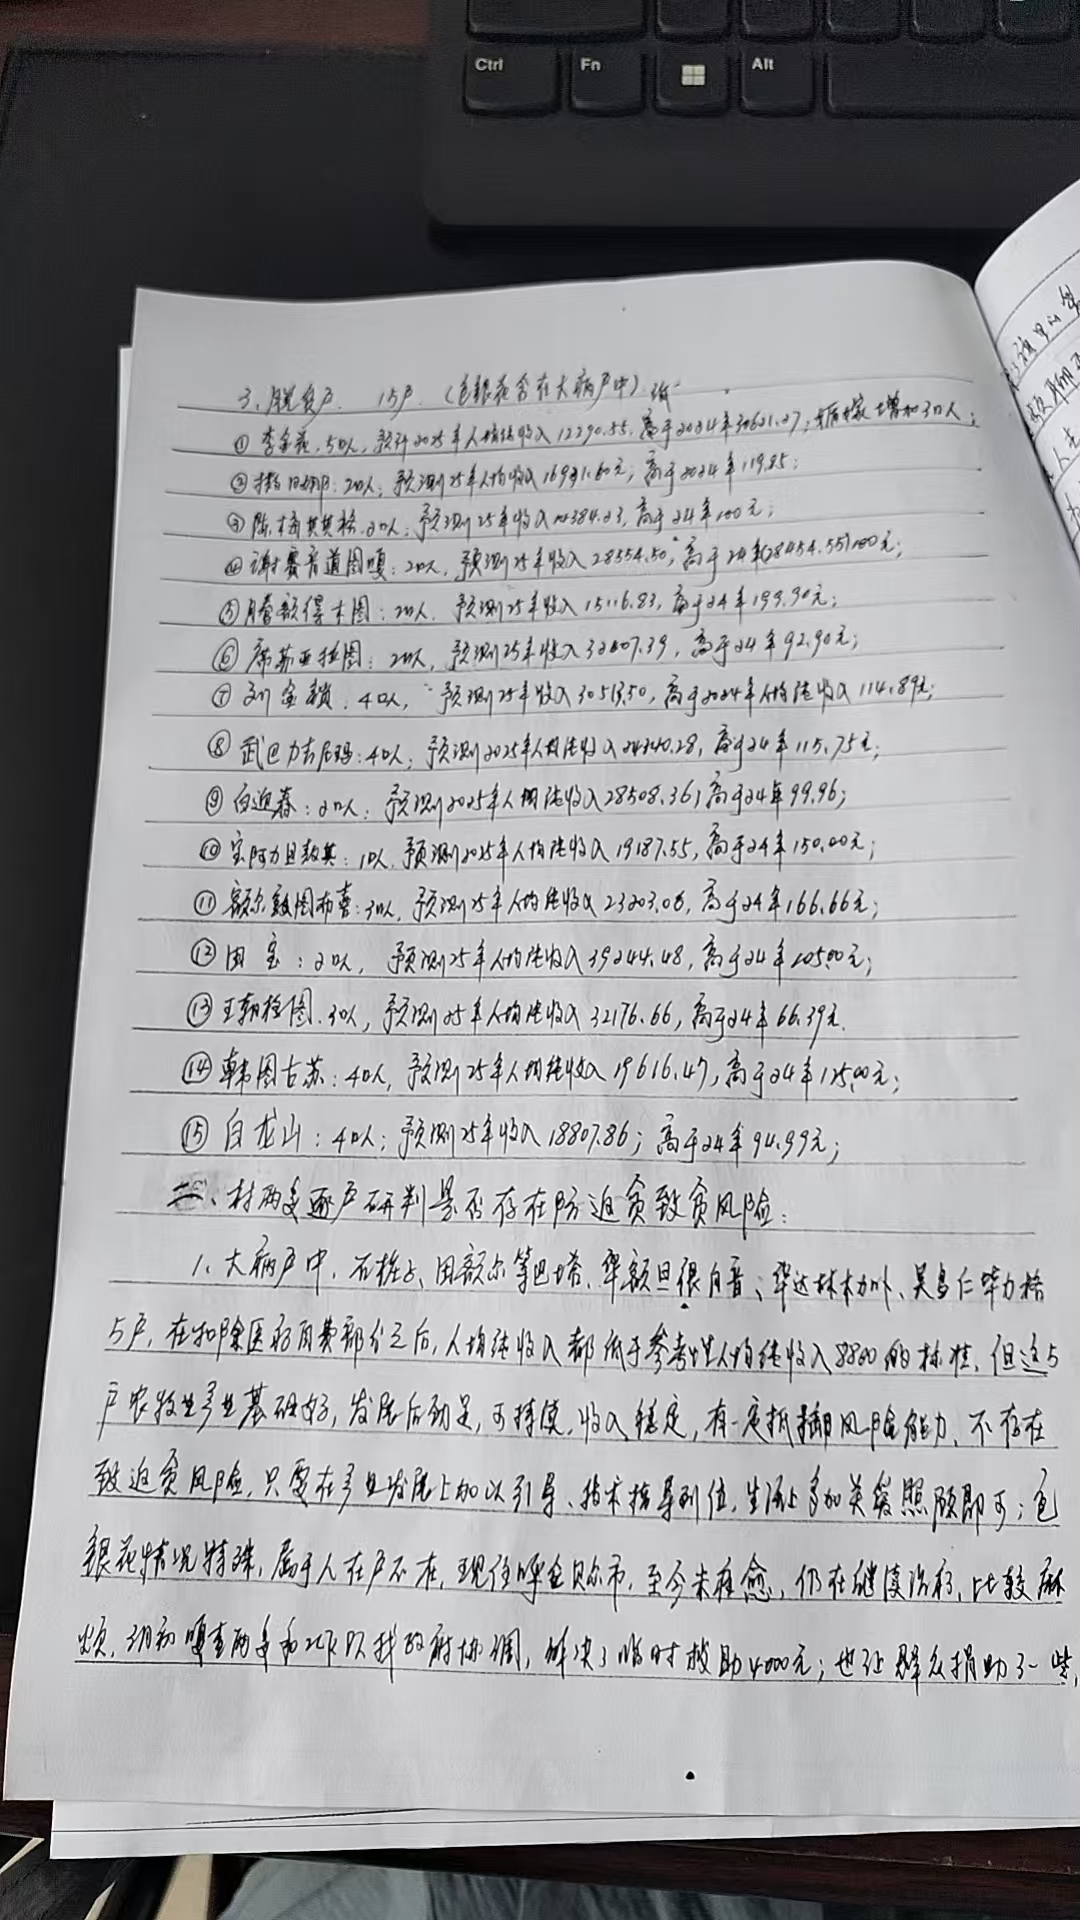 Ctrl Fn Alt
3、脱贫户 15户 (包银花含在大病户中)
① 5口人,预计2025年人均纯收入12290.55,高于2024年 增加3口人;
② 2口人;预测25年人均收入 元;高于2024年119.85;
③ 陈梅其其格 2口人;预测25年收入 384.23,高于24年100元;
④ 谢赛音道图嘎:2口人,预测25年收入28554.50,高于24年(28454.55)100元;
⑤ 额得木图:2口人.预测25年收入15116.83,高于24年199.90元;
⑥ 席苏亚拉图:2口人,预测25年收入 ,高于24年92.90元;
⑦ 刘金锁.4口人,预测25年收入 ,高于2024年人均纯收入114.89元;
⑧ 武巴力吉尼玛:4口人;预测2025年人均纯收入24340.28,高于24年115.75元;
⑨ 白迎春:2口人;预测2025年人均纯收入28508.36;高于24年99.96;
⑩ 宝阿力旦敖其:1口人.预测2025年人均纯收入19187.55,高于24年150.00元;
⑪ 额尔敦图布喜:3口人,预测25年人均纯收入23203.08,高于24年166.66元;
⑫ 田宝:2口人,预测25年人均纯收入39244.48,高于24年 元;
⑬ 王朝格图.3口人,预测25年人均纯收入32176.66,高于24年66.39元.
⑭ 韩图古苏:4口人,预测25年人均纯收入19616.47,高于24年125.00元;
⑮ 白龙山:4口人;预测25年收入18807.86;高于24年94.99元;
二、村两委逐户研判是否存在防返贫致贫风险:
1、大病户中,石栓 、田额尔等巴塔、 、 、吴乌仁毕力格
5户,在扣除医药自费部分之后,人均纯收入都低于参考性人均纯收入8800的标准,但这5
户农牧业产业基础好,发展后劲足,可持续,收入稳定,有一定抵御风险能力、不存在
致返贫风险,只要在产业发展上加以引导、技术指导到位,生活上多加关爱照顾即可;包
银花情况特殊,属于人在户不在,现住呼伦贝尔市,至今未痊愈,仍在继续治疗,比较麻
烦, 嘎查两委和 政府协调,解决了临时救助4000元;也让群众捐助了一些,